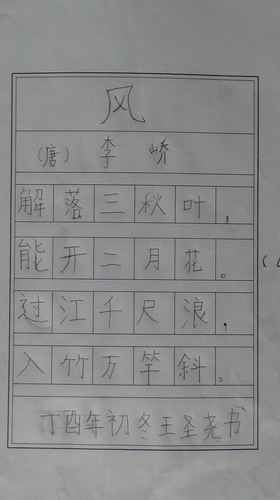 风
(唐) 李峤
解落三秋叶，
能开二月花。
过江千尺浪，
入竹万竿斜。
丁酉年初冬王圣尧书